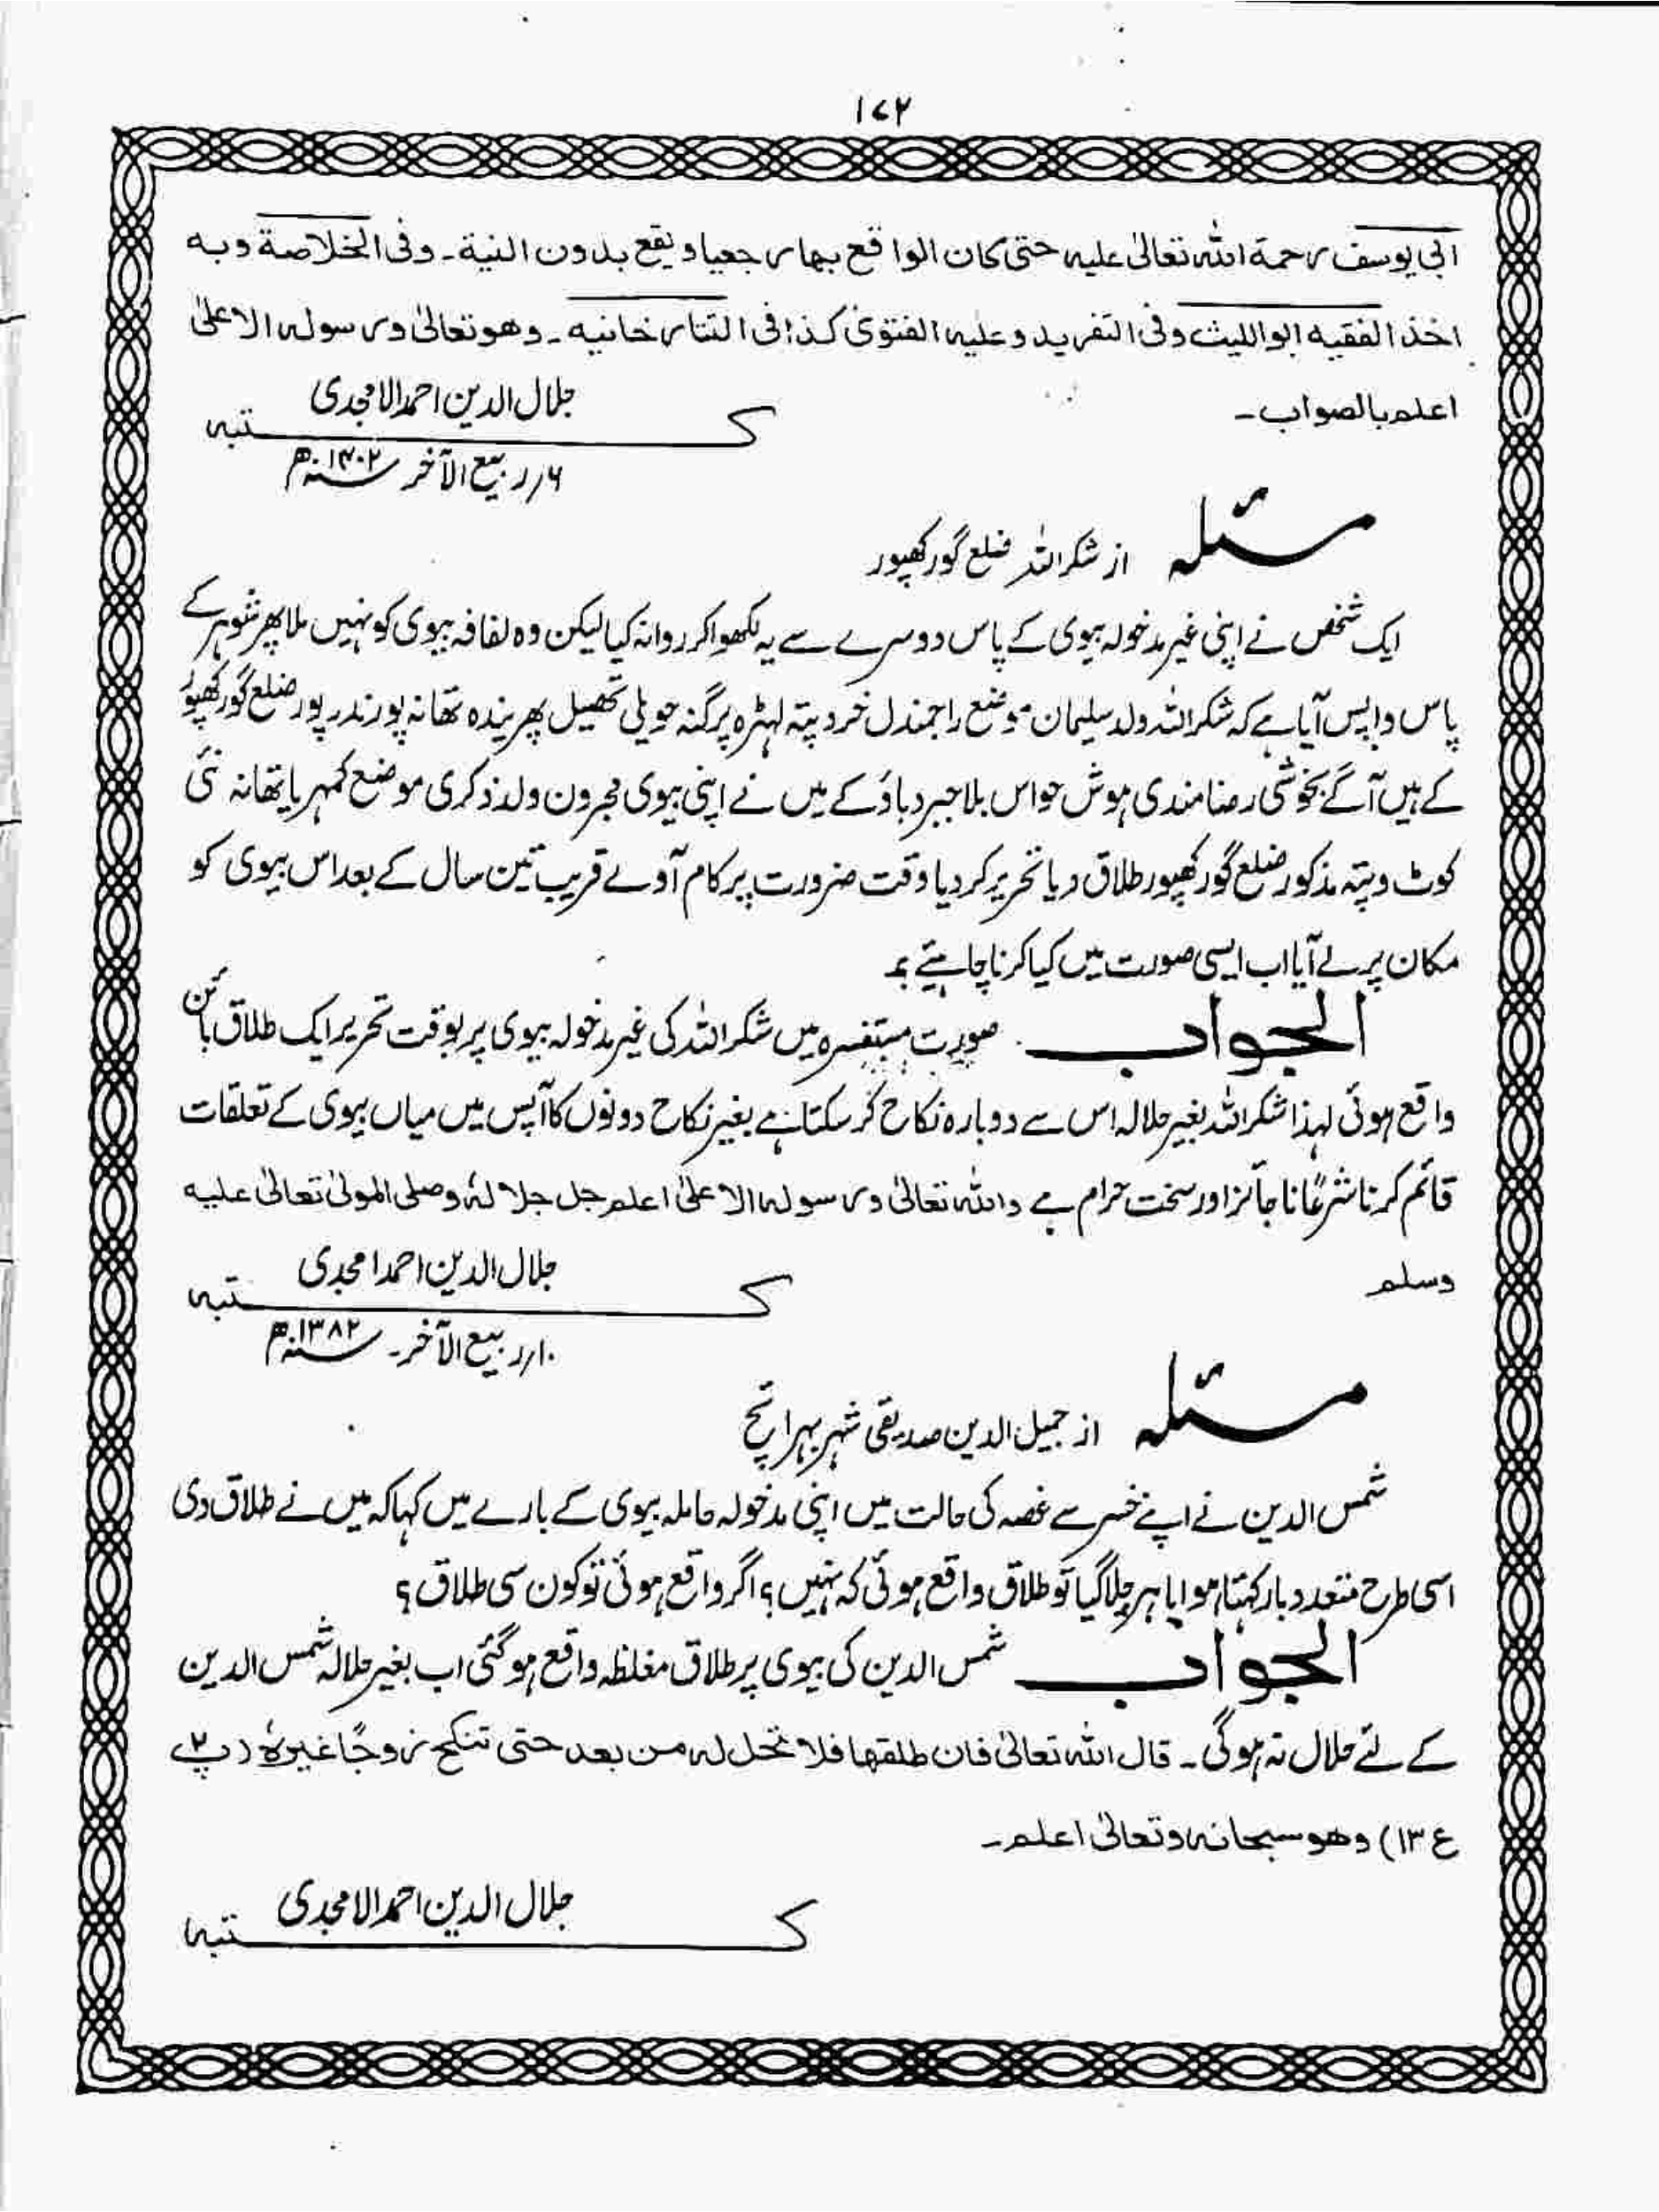 ۱۷۲
ابی یوسف رحمۃ اللہ تعالیٰ علیہ حتی کان الواقع بہا رجعیا و یقع بدون النیۃ۔ وفی الخلاصۃ وبہ
اخذ الفقیہ ابو اللیث وفی التفرید و علیہ الفتویٰ کذا فی التتارخانیہ۔ وھو تعالیٰ ورسولہ الاعلیٰ
اعلم بالصواب۔
جلال الدین احمد الامجدی
کتبہ
۶؍ ربیع الآخر سنہ ۱۴۰۲ھ
مسئلہ از شکر اللہ ضلع گورکھپور
ایک شخص نے اپنی غیر مدخولہ بیوی کے پاس دوسرے سے یہ لکھوا کر روانہ کیا لیکن وہ لفافہ بیوی کو نہیں ملا پھر شوہر کے
پاس واپس آیا ہے کہ شکر اللہ ولد سلیمان موضع راجمندل خرد پتہ لہڑہ پرگنہ حویلی تحصیل پھریندہ تھانہ پورندر پور ضلع گورکھپور
کے ہیں آگے بخوشی رضامندی ہوش حواس بلا جبر دباؤ کے میں نے اپنی بیوی ولد ذکری موضع کمہریا تھانہ نئی
کوٹ و پتہ مذکور ضلع گورکھپور طلاق دیا تحریر کر دیا وقت ضرورت پر کام آوے قریب تین سال کے بعد اس بیوی کو
مکان پر لے آیا اب ایسی صورت میں کیا کرنا چاہئیے
الجواب صورت مستفسرہ میں شکر اللہ کی غیر مدخولہ بیوی پر بوقت تحریر ایک طلاق بائن
واقع ہوئی لہذا شکر اللہ بغیر حلالہ اس سے دوبارہ نکاح کر سکتا ہے بغیر نکاح دونوں کا آپس میں میاں بیوی کے تعلقات
قائم کرنا شرعًا ناجائز اور سخت حرام ہے واللہ تعالیٰ ورسولہ الاعلیٰ اعلم جل جلالہٗ وصلی المولیٰ تعالیٰ علیہ
وسلم
جلال الدین احمد امجدی
کتبہ
۱۰؍ ربیع الآخر۔ سنہ ۱۳۸۲ھ
مسئلہ از جمیل الدین صدیقی شہر بہرائچ
شمس الدین نے اپنے خسر سے غصہ کی حالت میں اپنی مدخولہ حاملہ بیوی کے بارے میں کہا کہ میں نے طلاق دی
اسی طرح متعدد بار کہتا ہوا باہر چلا گیا تو طلاق واقع ہوئی کہ نہیں؟ اگر واقع ہوئی تو کون سی طلاق؟
الجواب شمس الدین کی بیوی پر طلاق مغلظہ واقع ہو گئی اب بغیر حلالہ شمس الدین
کے لئے حلال نہ ہوگی۔ قال اللہ تعالیٰ فان طلقھا فلا تحل لہ من بعد حتی تنکح زوجًا غیرہٗ (پ ۲
ع ۱۳) وھو سبحانہ وتعالیٰ اعلم۔
جلال الدین احمد الامجدی
کتبہ